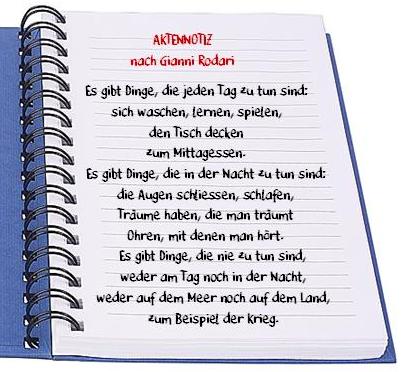 AKTENNOTIZ
nach Gianni Rodari
Es gibt Dinge, die jeden Tag zu tun sind:
sich waschen, lernen, spielen,
den Tisch decken
zum Mittagessen.
Es gibt Dinge, die in der Nacht zu tun sind:
die Augen schliessen, schlafen,
Träume haben, die man träumt
Ohren, mit denen man hört.
Es gibt Dinge, die nie zu tun sind,
weder am Tag noch in der Nacht,
weder auf dem Meer noch auf dem Land,
zum Beispiel der Krieg.